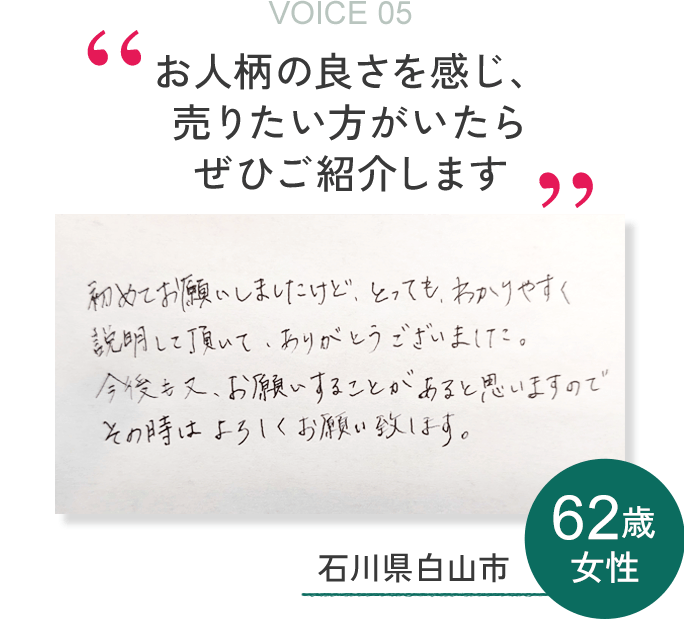 VOICE 05
“お人柄の良さを感じ、
売りたい方がいたら
ぜひご紹介します”
初めてお願いしましたけど、とっても、わかりやすく
説明して頂いて、ありがとうございました。
今後も又、お願いすることがあると思いますので
その時はよろしくお願い致します。
石川県白山市
62歳
女性